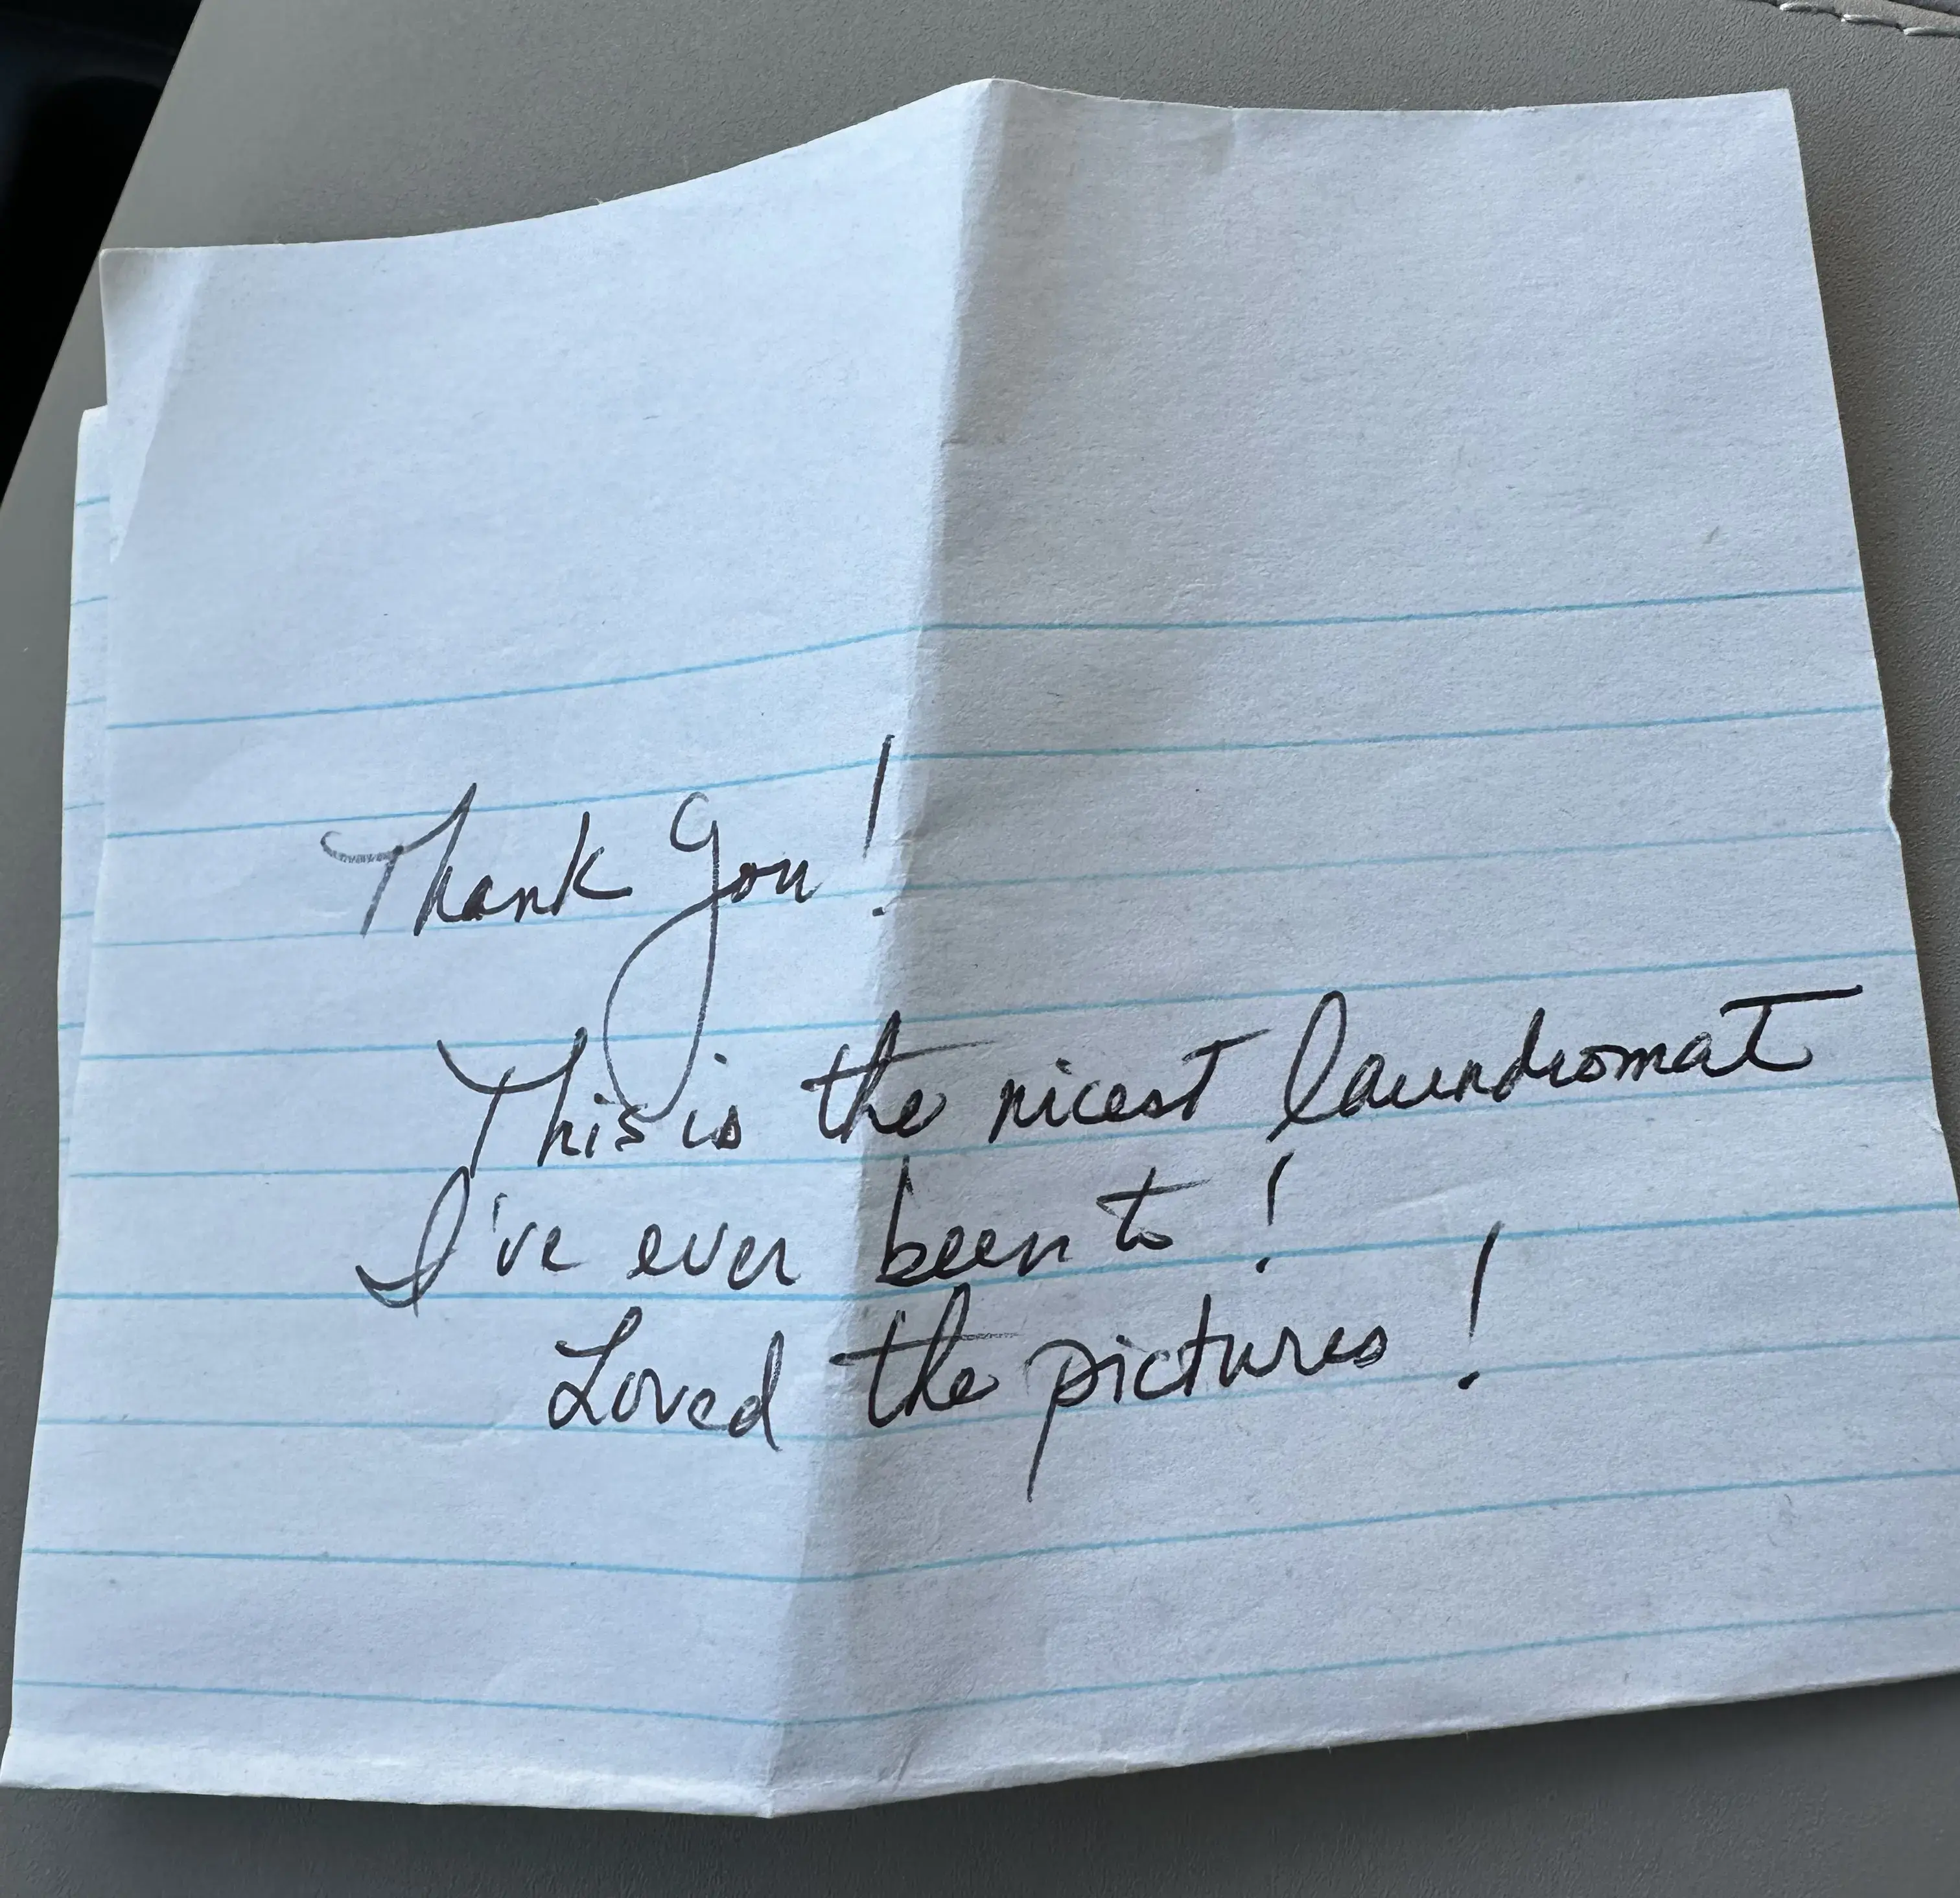 Thank you!
This is the nicest laundromat
I've ever been to!
Loved the pictures!